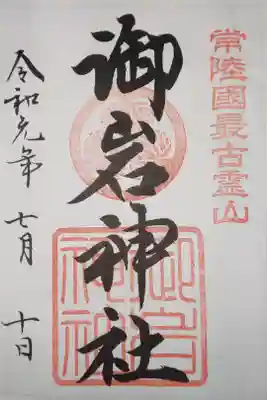 常陸國最古霊山
御岩神社
令和元年 七月 十日
御岩
神社